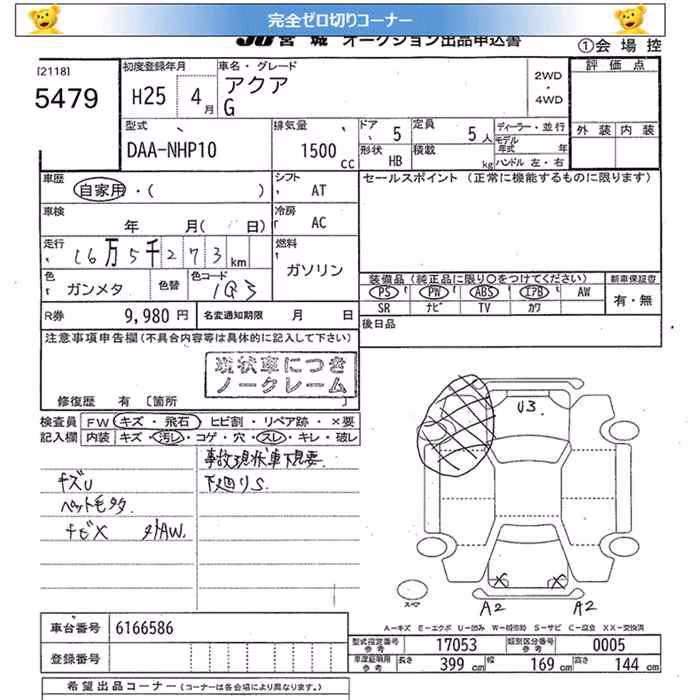 完全ゼロ切りコーナー
JU 宮城 オークション出品申込書
①会場控
[2118]
5479
初度登録年月
H25 4月
車名・グレード
アクア
G
2WD
・
4WD
評価点
外装 内装
型式
DAA-NHP10
排気量
1500 cc
ドア 5
形状 HB
定員 5人
積載 kg
ディーラー・並行
モデル年式 年
ハンドル 左・右
車歴
自家用・( )
シフト
AT
セールスポイント (正常に機能するものに限ります)
車検
年 月( 日)
冷房
AC
走行
16万5千273km
燃料
ガソリン
色
ガンメタ
色替
色コード
1G3
装備品(純正品に限り○をつけてください)
PS PW ABS エアB AW
SR ナビ TV カワ
新車保証書
有・無
R券 9,980円
名変通知期限 月 日
後日品
注意事項申告欄(不具合内容等は具体的に記入して下さい)
現状車につき
ノークレーム
修復歴 有 〔箇所
検査員記入欄
FW キズ・飛石・ヒビ割・リペア跡・×要
内装 キズ・汚レ・コゲ・穴・スレ・キレ・破レ
事故現状車 下見要
チズU 下廻りS.
ペット毛タタ
ナビX タトAW.
U3.
スペア
A2 A2
A-キズ E-エクボ U-凹み W-補修跡 S-サビ C-腐食 XX-交換済
車台番号 6166586
登録番号
型式指定番号 参考 17053
類別区分番号 参考 0005
車庫証明用 参考 長さ 399cm 幅 169cm 高さ 144cm
希望出品コーナー(コーナーは各会場により異なります。)